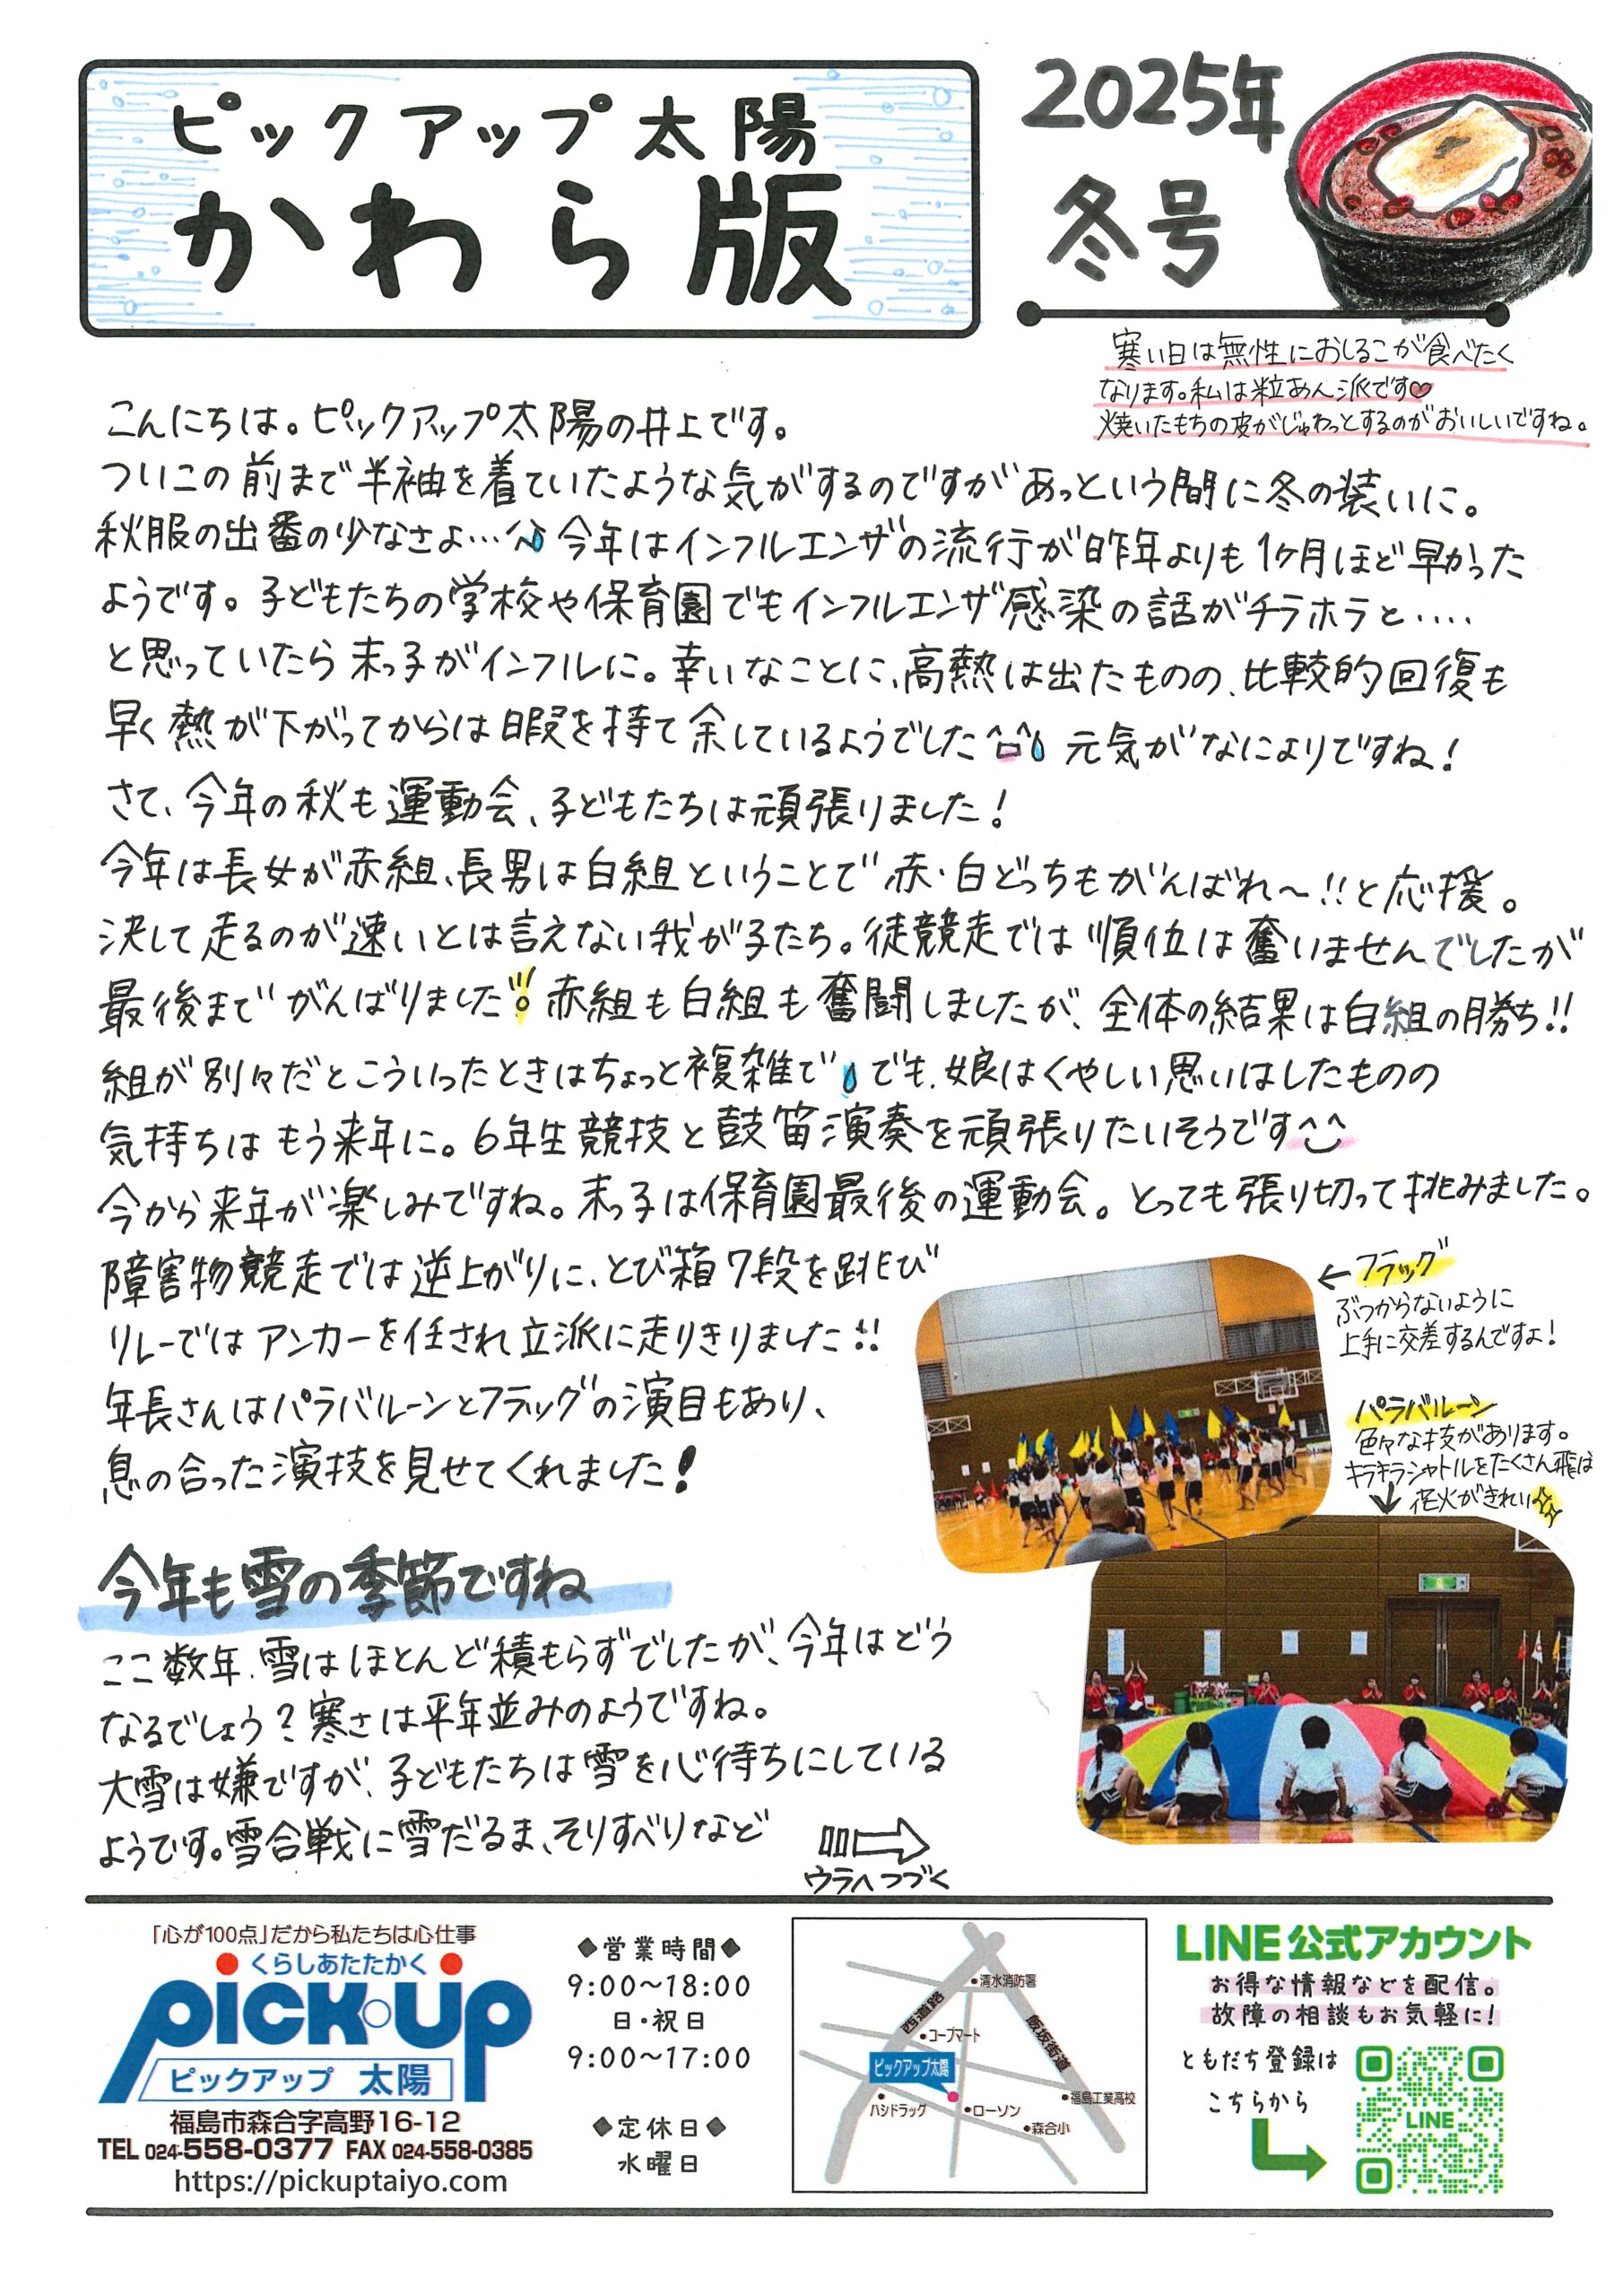 ピックアップ太陽
かわら版
2025年
冬号
寒い日は無性におしるこが食べたく
なります。私は粒あん派です♡
焼いたもちの皮がじゅわっとするのがおいしいですね。
こんにちは。ピックアップ太陽の井上です。
ついこの前まで半袖を着ていたような気がするのですがあっという間に冬の装いに。
秋服の出番の少なさよ…今年はインフルエンザの流行が昨年よりも1ヶ月ほど早かった
ようです。子どもたちの学校や保育園でもインフルエンザ感染の話がチラホラと‥‥
と思っていたら末っ子がインフルに。幸いなことに、高熱は出たものの、比較的回復も
早く熱が下がってからは暇を持て余しているようでした 元気がなによりですね!
さて、今年の秋も運動会、子どもたちは頑張りました!
今年は長女が赤組、長男は白組ということで赤・白どっちもがんばれ〜!!と応援。
決して走るのが速いとは言えない我が子たち。徒競走では順位は奮いませんでしたが
最後までがんばりました 赤組も白組も奮闘しましたが、全体の結果は白組の勝ち!!
組が別々だとこういったときはちょっと複雑で でも、娘はくやしい思いはしたものの
気持ちはもう来年に。6年生競技と鼓笛演奏を頑張りたいそうです^^
今から来年が楽しみですね。末っ子は保育園最後の運動会。とっても張り切って挑みました。
障害物競走では逆上がりに、とび箱7段を跳び
リレーではアンカーを任され立派に走りきりました!!
年長さんはパラバルーンとフラッグの演目もあり、
息の合った演技を見せてくれました!
←フラッグ
ぶつからないように
上手に交差するんですよ!
パラバルーン
色々な技があります。
キラキラシャトルをたくさん飛ば
↓ 花火がきれい
今年も雪の季節ですね
ここ数年、雪はほとんど積もらずでしたが、今年はどう
なるでしょう?寒さは平年並みのようですね。
大雪は嫌ですが、子どもたちは雪を心待ちにしている
ようです。雪合戦に雪だるま、そりすべりなど
ウラへつづく
「心が100点」だから私たちは心仕事
くらしあたたかく
PICK・UP
ピックアップ 太陽
福島市森合字高野16-12
TEL 024-558-0377 FAX 024-558-0385
https://pickuptaiyo.com
◆営業時間◆
9:00〜18:00
日・祝日
9:00〜17:00
◆定休日◆
水曜日
清水消防署
西道路
コープマート
飯坂街道
ピックアップ太陽
ハシドラッグ
ローソン
福島工業高校
森合小
LINE公式アカウント
お得な情報などを配信。
故障の相談もお気軽に!
ともだち登録は
こちらから
LINE